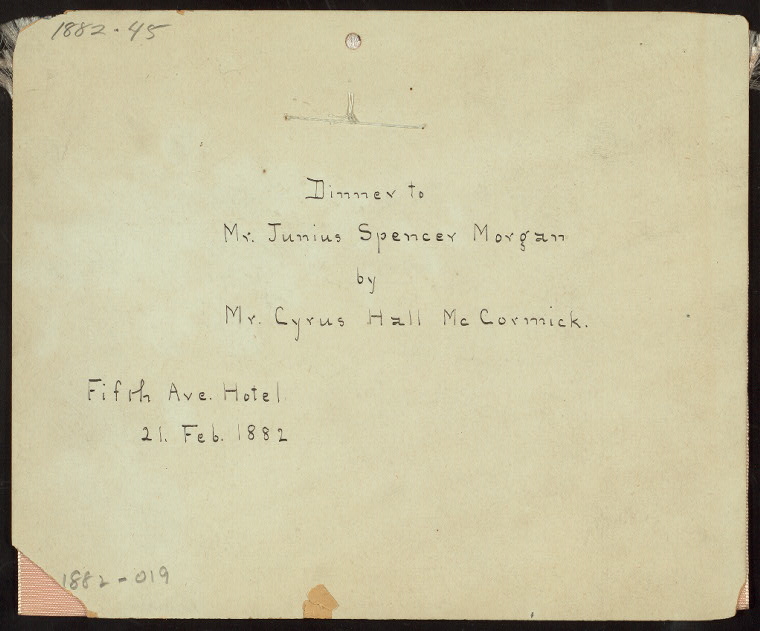 1882-45
Dinner to
Mr. Junius Spencer Morgan
by
Mr. Cyrus Hall McCormick.
Fifth Ave. Hotel
21. Feb. 1882
1882-019